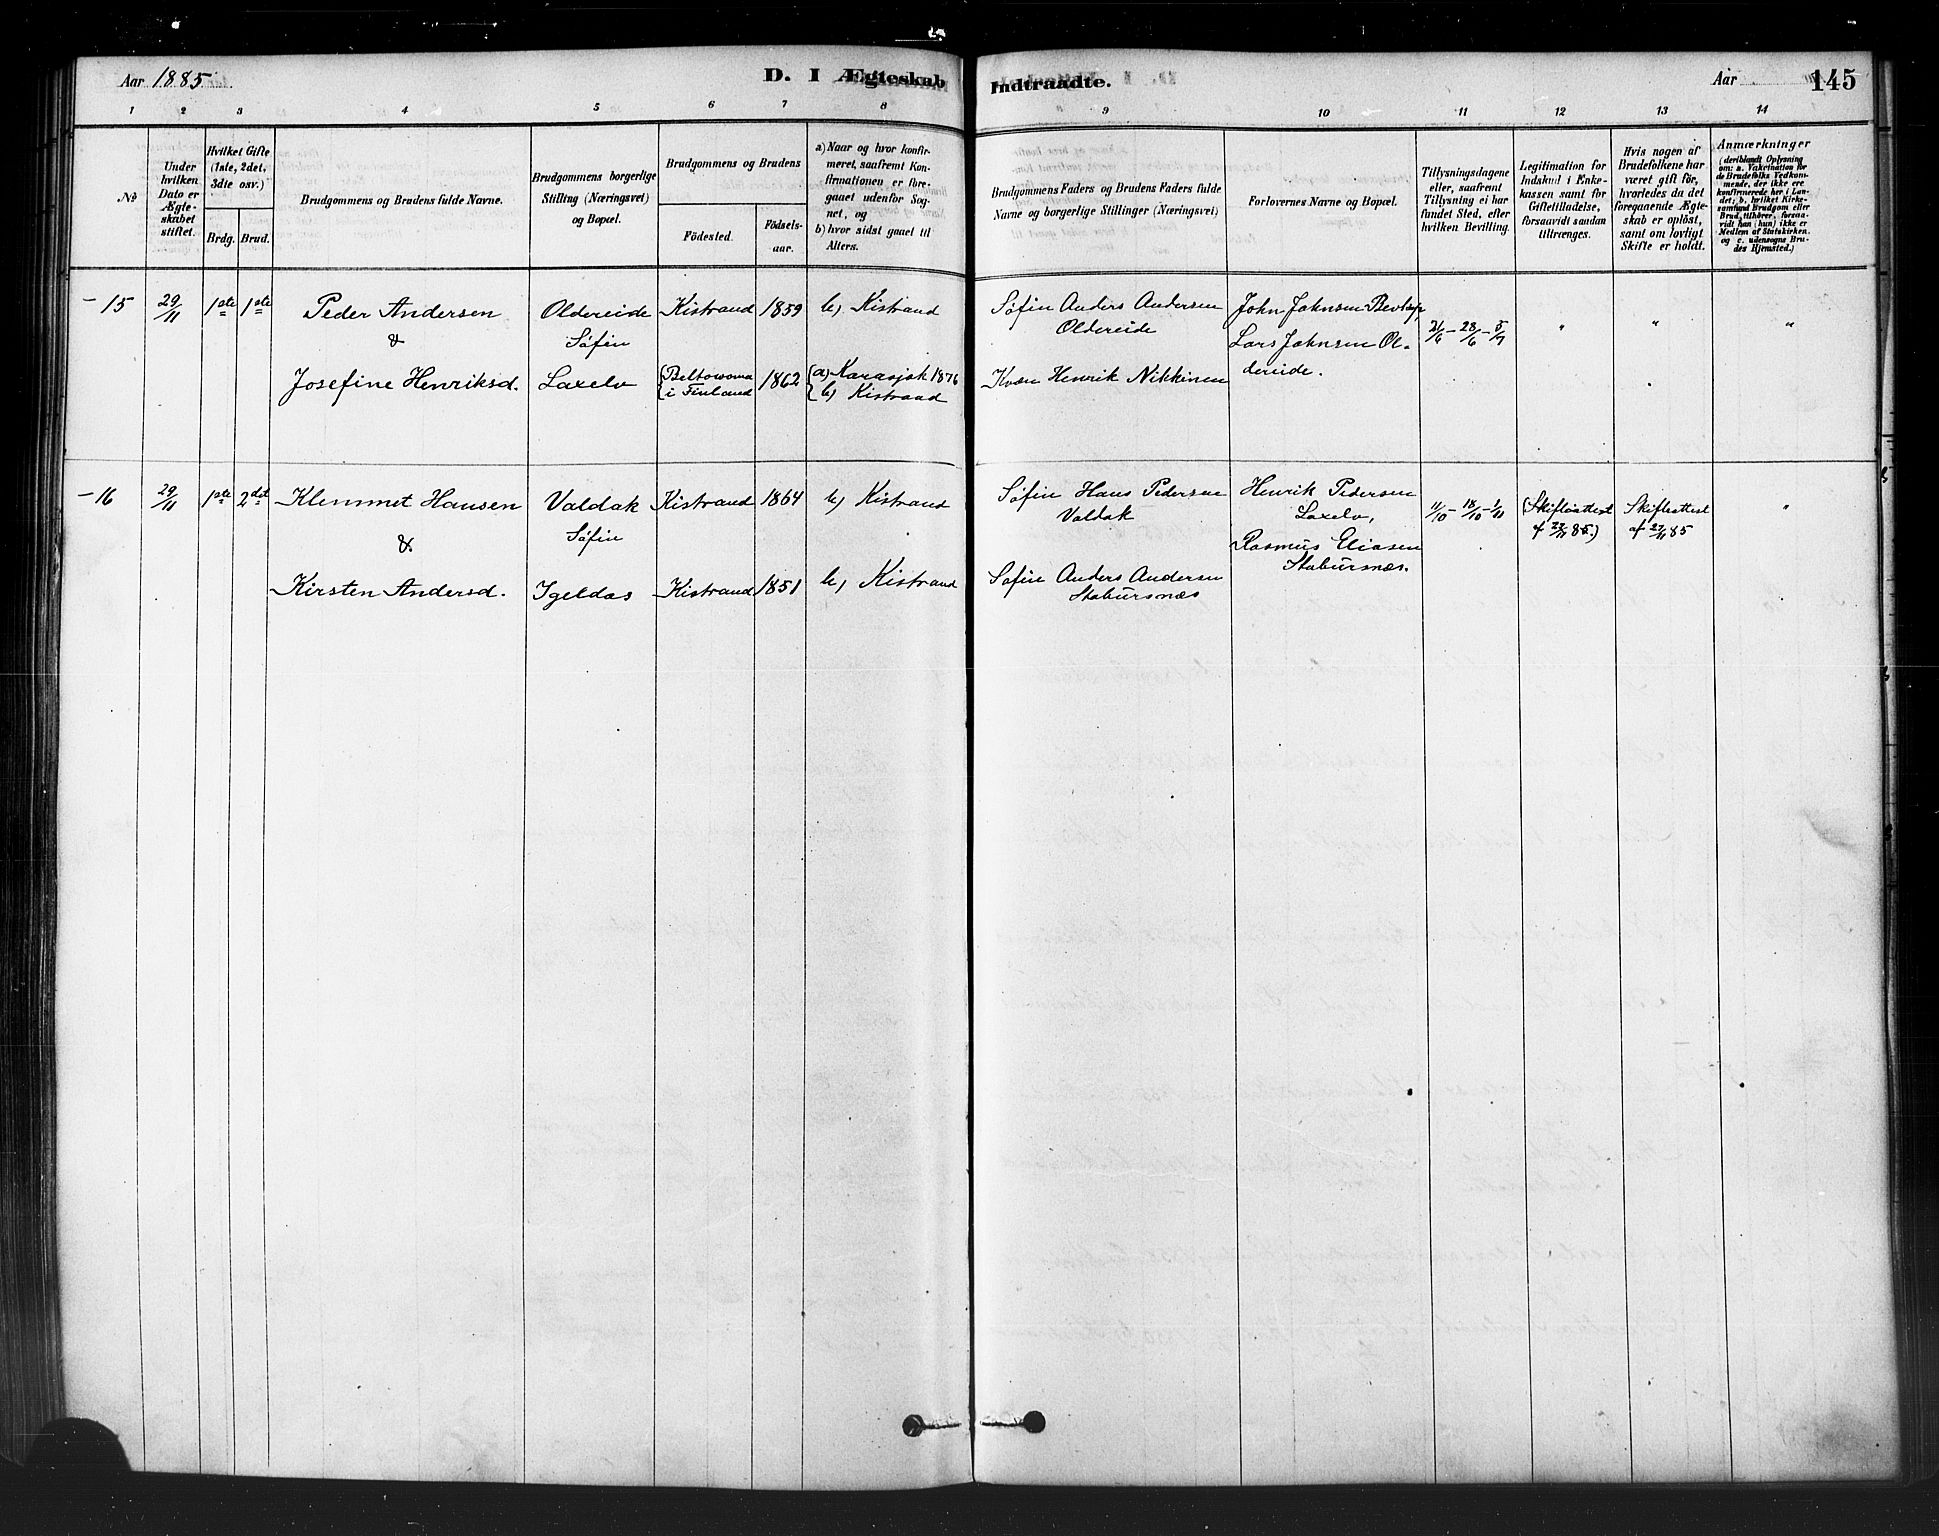 Aar 1885.
D. I Ægteskab
Indtraadte.
Aar
145
1 2 3 4 5 6 7 8 9 10 11 12 13 14
No
Under hvilken Dato er Ægteskabet stiftet.
Hvilket Gifte (1ste, 2det, 3die osv.)
Brdg. Brud.
Brudgommens og Brudens fulde Navne.
Brudgommens borgerlige Stilling (Næringsvei) og Bopæl.
Brudgommens og Brudens
Födested.
Födselsaar.
a) Naar og hvor konfirmeret, saafremt Konfirmationen er foregaaet udenfor Sognet, og
b) hvor sidst gaaet til Alters.
Brudgommens Faders og Brudens Faders fulde Navne og borgerlige Stillinger (Næringsvei)
Forlovernes Navne og Bopæl.
Tillysningsdagene eller, saafremt Tillysning ei har fundet Sted, efter hvilken Bevilling.
Legitimation for Indskud i Ænkekassen samt for Giftetilladelse, forsaavidt saadan tiltrænges.
Hvis nogen af Brudefolkene har været gift för, hvorledes da det foregaaende Ægteskab er oplöst, samt om lovligt Skifte er holdt.
Anmærkninger (deriblandt Oplysning om: a. Vakcination for de Brudefolks Vedkommende, der ikke ere konfirmerede her i Landet; b. hvilket Kirkesamfund Brudgom eller Brud tilhörer, forsaavidt han (hun) ikke er Medlem af Statskirken. og c. udensogns Brudes Hjemsted.)
- 15
29/11
1ste 1ste
Peder Andersen
&
Josefine Henriksd.
Oldereide
Søfin
Laxelv
Kistrand 1859
b) Kistrand
i Finland 1862
a) Karasjok 1876
b) Kistrand
Søfin Anders Andersen
Oldereide
Kvæn Henrik Nikkinen
John Johnsen
Lars Johnsen Ol-
dereide.
21/6 - 28/6 - 5/7
" " "
- 16
29/11
1ste 2det
Klemmet Hansen
&
Kirsten Andersd.
Valdak
Søfin
Igeldas
Kistrand 1864
b) Kistrand
Kistrand 1851
b) Kistrand
Søfin Hans Pedersen
Valdak
Søfin Anders Andersen
Stabursnæs
Henrik Pedersen
Laxelv,
Rasmus Eliasen
Stabursnæs.
11/10 - 18/10 - 1/11
(Skifteattest
af 27/11 85.)
Skifteattest
af 27/11 85
"